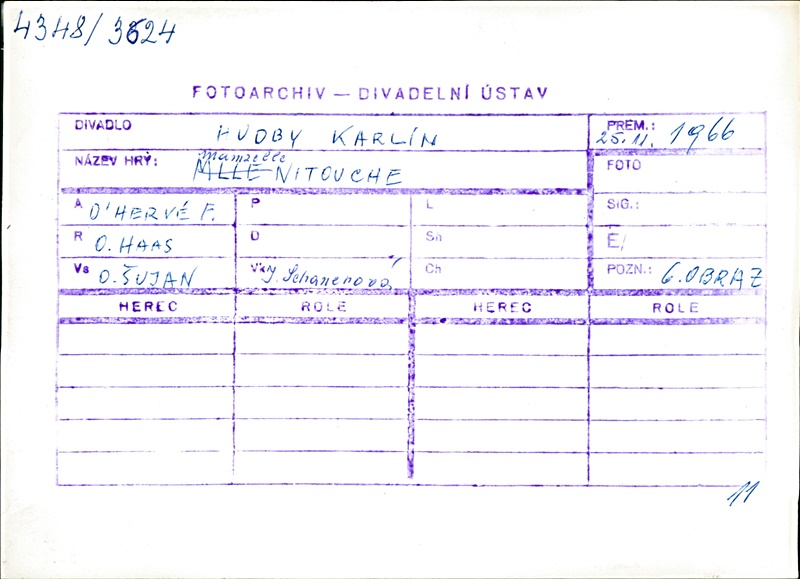 4348/3624
FOTOARCHIV — DIVADELNÍ ÚSTAV
DIVADLO HUDBY KARLÍN
PREM.: 25.11.1966
NÁZEV HRY: MLLE Mamzelle NITOUCHE
FOTO
A O'HERVÉ F.
P
L
SIG.:
R O. HAAS
D
Sn
E/
Vs O. ŠUJAN
Vk J. Schanenová
Ch
POZN.: 6. OBRAZ
HEREC ROLE HEREC ROLE
11